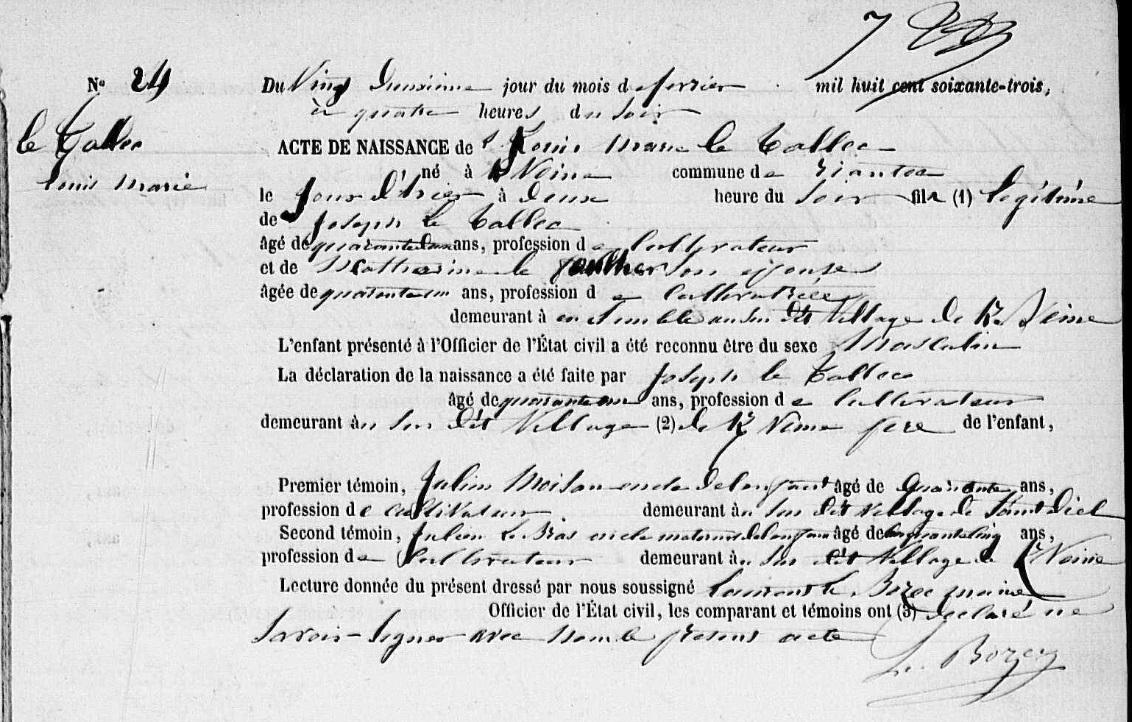 7
N° 24
Du Vingt deuxieme jour du mois de fevrier mil huit cent soixante-trois,
à quatre heures du soir
le Tallec
Louis Marie
ACTE DE NAISSANCE de Louis Marie le Tallec
né à K Neine commune de Riantec
le Jour d'hier à deux heure du soir fils (1) légitime
de Joseph le Tallec
âgé de quarante ans, profession de Cultivateur
et de Mathurine le son epouse
âgée de quarante un ans, profession de Cultivatrice
demeurant à ensemble au sus dit Village de Kr Neine
L'enfant présenté à l'Officier de l'État civil a été reconnu être du sexe Masculin
La déclaration de la naissance a été faite par Joseph le Tallec
âgé de quarante ans, profession de Cultivateur
demeurant au sus dit Village (2) de Kr Neine pere de l'enfant,
Premier témoin, Julien Moisan oncle de lenfant âgé de quarante ans,
profession de cultivateur demeurant au sus dit Village de
Second témoin, Julien le Bras oncle maternel de lenfant âgé de cinquante cinq ans,
profession de Cultivateur demeurant au sus dit Village de K Neine
Lecture donnée du présent dressé par nous soussigné Laurent le Bozec maire
Officier de l'État civil, les comparant et témoins ont (3) declaré ne
savoir signer avec nous le present acte
L. Bozec